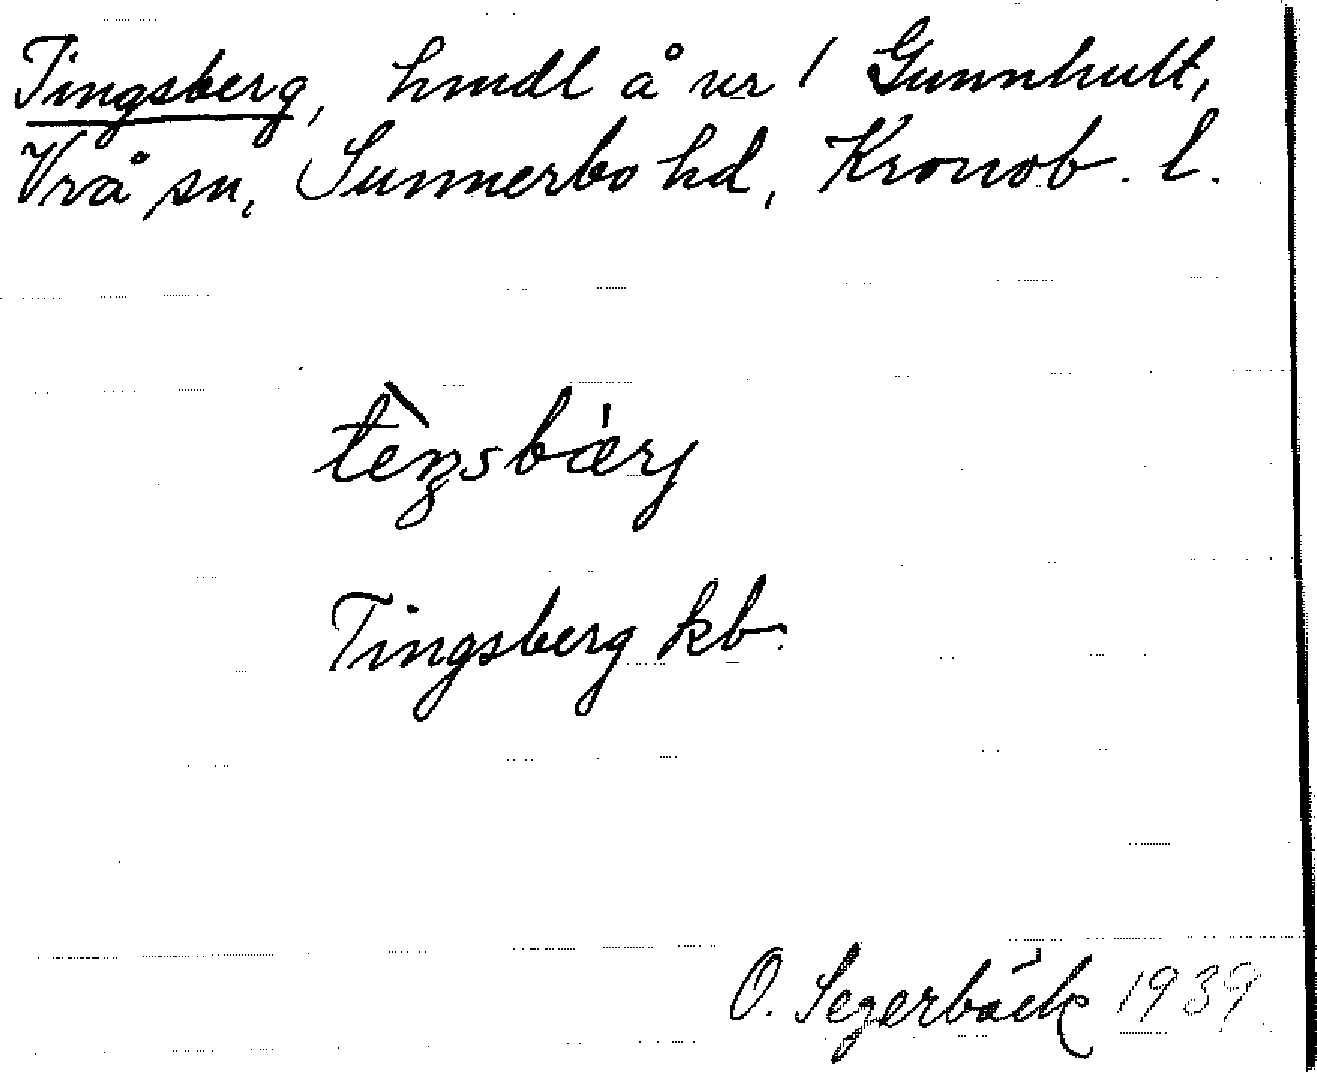 Tingsberg, hmdl å nr 1 Gunnhult,
Vrå sn, Sunnerbo hd, Kronob. l.
tèŋsbærj
Tingsberg kb.
O. Segerbäck 1939